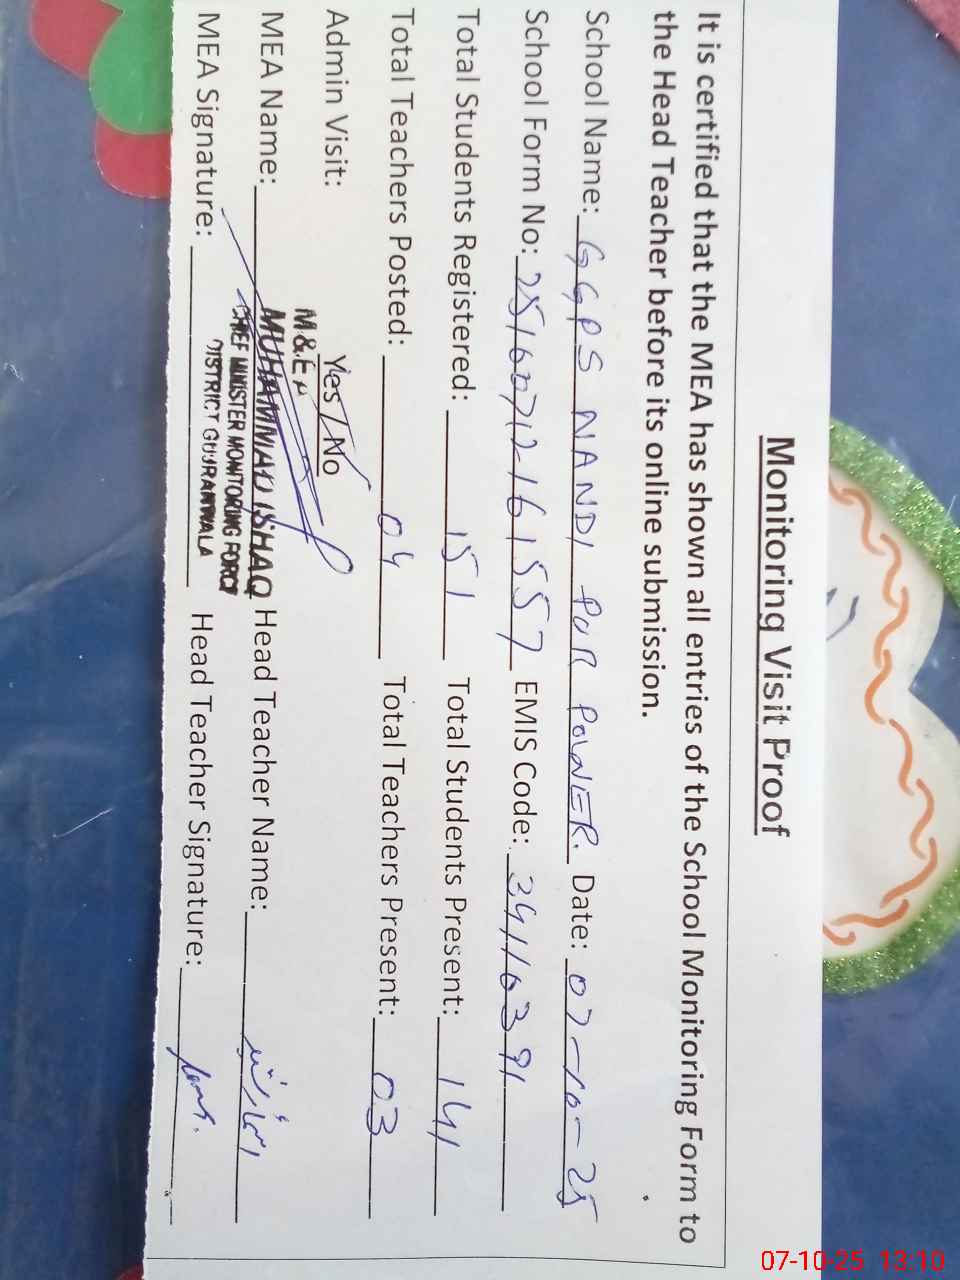 Monitoring Visit Proof
It is certified that the MEA has shown all entries of the School Monitoring Form to
the Head Teacher before its online submission.
School Name: GGPS NANDI PUR POWER. Date: 07-10-25
School Form No: EMIS Code: 34116391
Total Students Registered: 151 Total Students Present: 141
Total Teachers Posted: 04 Total Teachers Present: 03
Admin Visit: Yes / No
M&E
MEA Name: MUHAMMAD ISHAQ Head Teacher Name:
CHIEF MINISTER MONITORING FORCE
MEA Signature: DISTRICT GUJRANWALA Head Teacher Signature:
07-10-25 13:10